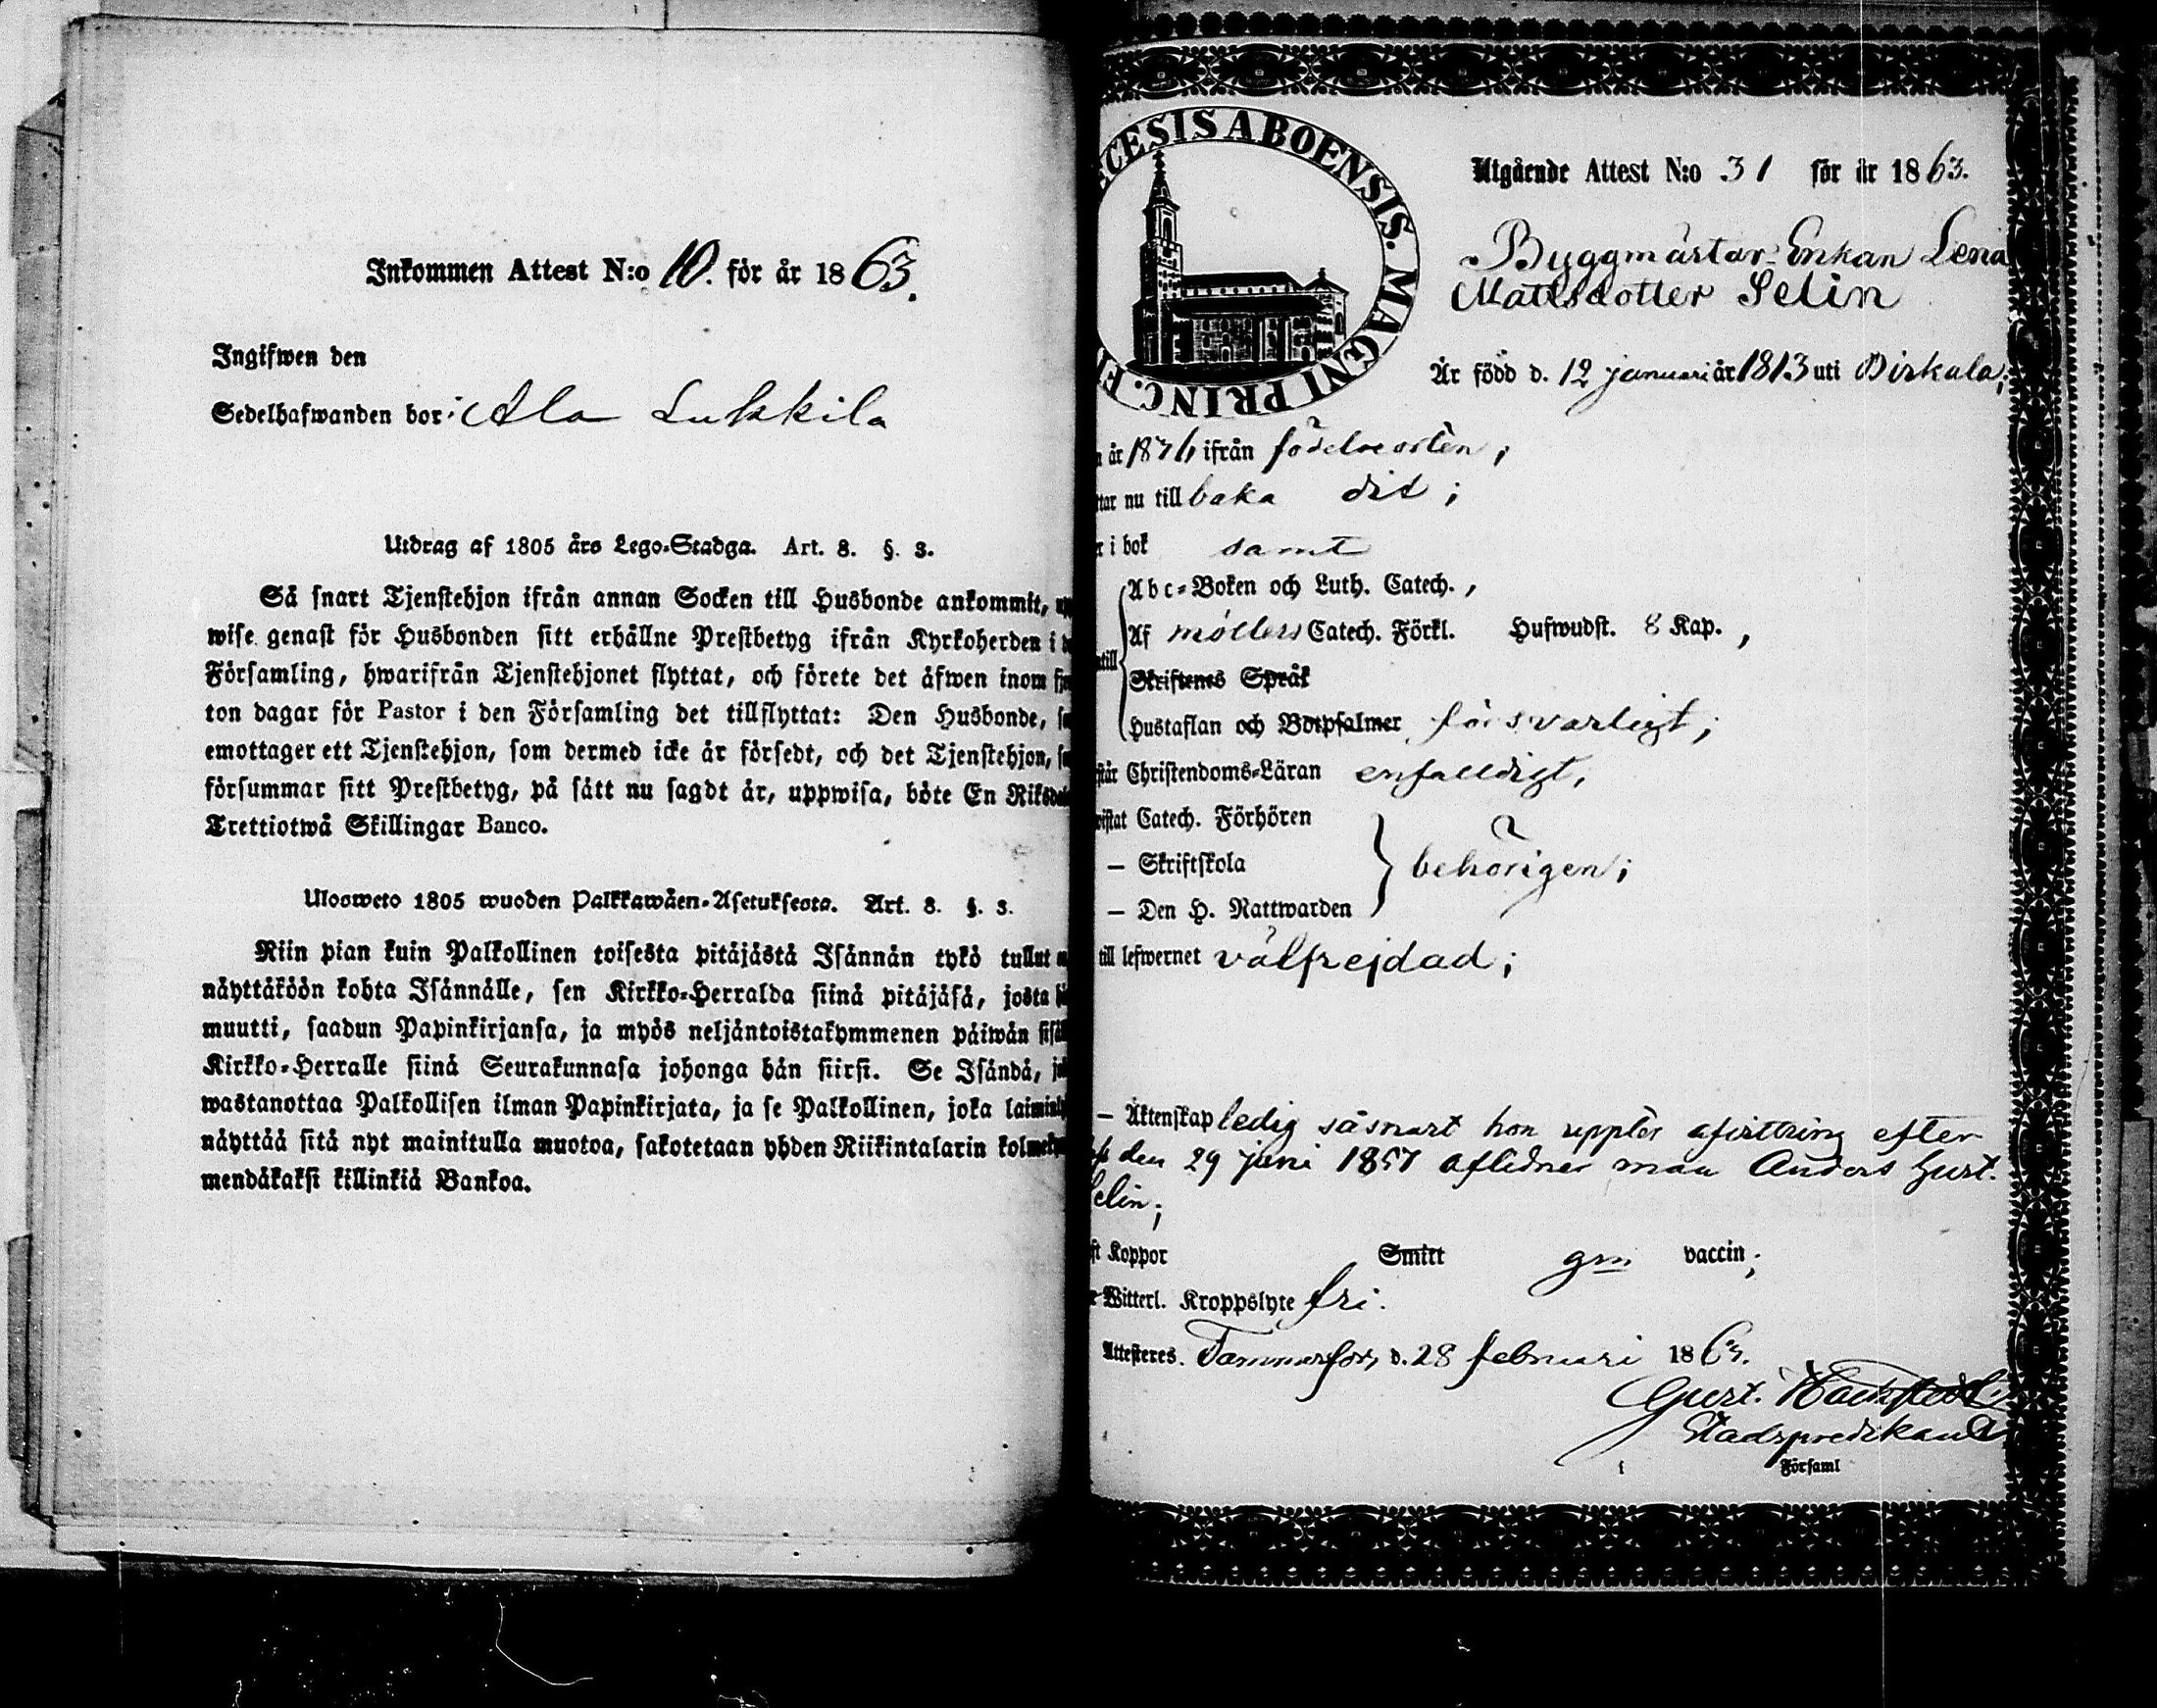 Inkommen Attest N:o 10. för år 1863.
Ingifwen den
Sedelhafwanden bor: Ala Lukkila
Utdrag af 1805 års Lego-Stadga. Art. 8. §. 3.
Så snart Tjenstehjon ifrån annan Socken till Husbonde ankommit,
wise genast för Husbonden sitt erhållne Prestbetyg ifrån Kyrkoherden i
Församling, hwarifrån Tjenstehjonet flyttat, och förete det äfwen inom
ton dagar för Pastor i den Församling det tillflyttat: Den Husbonde,
emottager ett Tjenstehjon, som dermed icke är försedt, och det Tjenstehjon,
försummar sitt Prestbetyg, på sätt nu sagdt är, uppwisa, böte En
Trettiotwå Skillingar Banco.
Ulosweto 1805 wuoden Palkkawäen-Asetuksesta. Art. 8. §. 3.
Niin pian kuin Palkollinen toisesta pitäjästä Isännän tykö tullut
näyttäköön kohta Isännälle, sen Kirkko-Herralda siinä pitäjäsä, josta
muutti, saadun Papinkirjansa, ja myös neljäntoistakymmenen päiwän
Kirkko-Herralle siinä Seurakunnasa johonga hän siirsi. Se Isändä,
wastanottaa Palkollisen ilman Papinkirjata, ja se Palkollinen, joka
näyttää sitä nyt mainitulla muotoa, sakotetaan yhden Riikintalarin
mendäkaksi killinkiä Bankoa.
CESIS ABOENSIS. MAGNI PRINC. FI
Utgående Attest N:o 31 för år 1863.
Byggmästar-Enkan Lena
Mattsdotter Selin
Är född d. 12 januari år 1813 uti Birkala;
år ifrån födelseorten;
nu till baka dit;
i bok samt
Abc-Boken och Luth. Catech.,
Af möllers Catech. Förkl. Hufwudst. 8 Kap.,
Skriftenes Språk
Hustaflan och Botpsalmer försvarligt;
Christendoms-Läran enfalldigt,
Catech. Förhören
— Skriftskola behörigen;
— Den H. Nattwarden
till lefwernet välfrejdad;
— Äktenskap ledig såsnart hon upptér afvittring efter
den 29 juni 1857 aflidner man Anders Gust.
elin;
Koppor Smitt gm vaccin;
Witterl. Kroppslyte fri.
Attesteres. Tammerfors, d. 28 februari 1863.
Gust.
Stadspredikant
i Församl